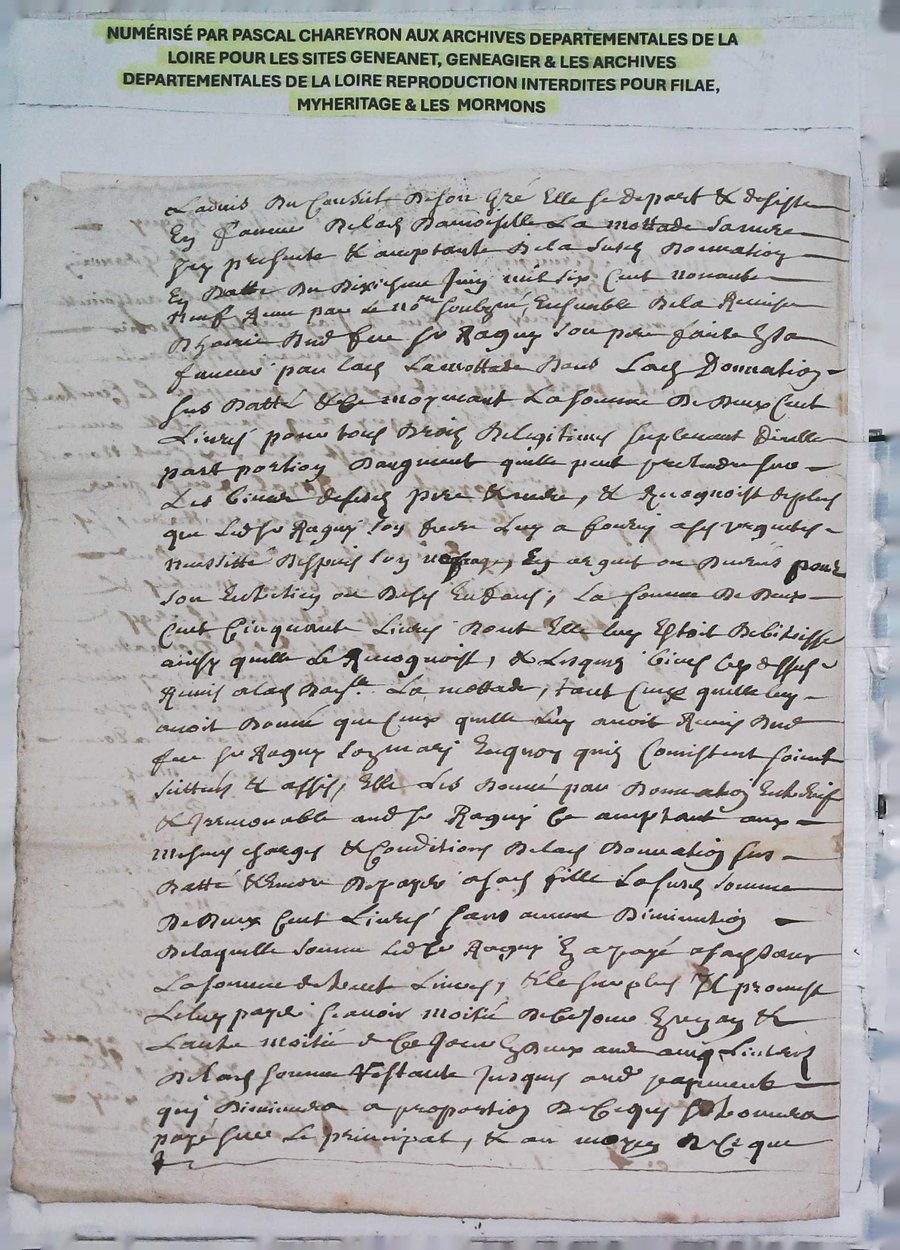 NUMÉRISÉ PAR PASCAL CHAREYRON AUX ARCHIVES DEPARTEMENTALES DE LA
LOIRE POUR LES SITES GENEANET, GENEAGIER & LES ARCHIVES
DEPARTEMENTALES DE LA LOIRE REPRODUCTION INTERDITES POUR FILAE,
MYHERITAGE & LES MORMONS
Ladvis du Conseil de son gré Elle se depart & desiste
En faveur de lad damoiselle La mottade sa mere
Icy presente & acceptante de la susd donnation
En datte du dixiesme Juin mil six cent nonante
neuf Receue par le no.re soubsigné, Ensemble de la Remise
d'hoirie dud feu sr Raguy son pere faite
par lad Lamottade dans Lad donnation
sus datté & ce moyenant La somme de deux cent
Livres pour tous droits de legitime suplement dicelle
part portion daugment quelle peut pretendre sur
Les biens desd pere & mere, & Recognoist de plus
que Led sr Raguy son frere Luy a fourny a ses requetes
neussitté despuis son En argent ou danrés pour
son Entretien ou de ses Enfans, La somme de deux
Cent Cinquante Livres dont Elle luy Estoit debitrisse
ainsy quelle Le Recognoist, & Lesquels biens
Remis a lad dam.lle La mottade, tant Ceux quelle luy
avoit donné que Ceux quelle Luy avoit Remis dud
feu sr Raguy son mary Enquoy quils Consistent soient
scittués & assis, Elle Les donne par donnation Entre vifs
& Irrevocable aud sr Raguy Ce acceptant aux
mesmes charges & Conditions de lad donnation sus
datté & Encore de payer a sad fille La susd somme
de deux Cent Livres sans aucune diminution
de laquelle somme Led sr Raguy En a payé a sad sœur
La somme de trente Livres, & le surplus Il promet
Le luy payer scavoir moitié de Ce Jour En un an &
Lautre moitié de Ce Jour En deux ans avec Linterest
de lad somme Restante Jusques aud payement
quy diminuera a proportion de Ce quy se trouvera
payé sur Le principal, & au moyen de Ce que